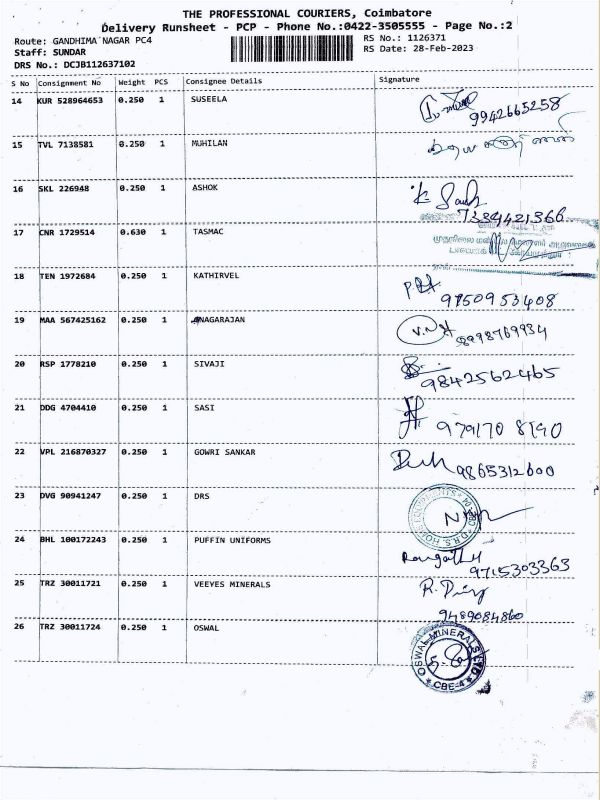 THE PROFESSIONAL COURIERS, Coimbatore
Delivery Runsheet - PCP - Phone No.:0422-3505555 - Page No.:2
Route: GANDHIMA NAGAR PC4 RS No.: 1126371
Staff: SUNDAR RS Date: 28-Feb-2023
DRS No.: DCJB112637102
S No Consignment No Weight PCS Consignee Details Signature
14 KUR 528964653 0.250 1 SUSEELA
9942665258
15 TVL 7138581 0.250 1 MUHILAN
16 SKL 226948 0.250 1 ASHOK
7384421366
17 CNR 1729514 0.630 1 TASMAC
18 TEN 1972684 0.250 1 KATHIRVEL
9750953408
19 MAA 567425162 0.250 1 NAGARAJAN
8998769934
20 RSP 1778210 0.250 1 SIVAJI
9842562465
21 DDG 4704410 0.250 1 SASI
979170 8190
22 VPL 216870327 0.250 1 GOWRI SANKAR
9865312600
23 DVG 90941247 0.250 1 DRS
D.R.S. HOME EQUIPMENTS
24 BHL 100172243 0.250 1 PUFFIN UNIFORMS
9715303363
25 TRZ 30011721 0.250 1 VEEYES MINERALS
9489084860
26 TRZ 30011724 0.250 1 OSWAL
OSWAL MINERALS LTD
CBE-4